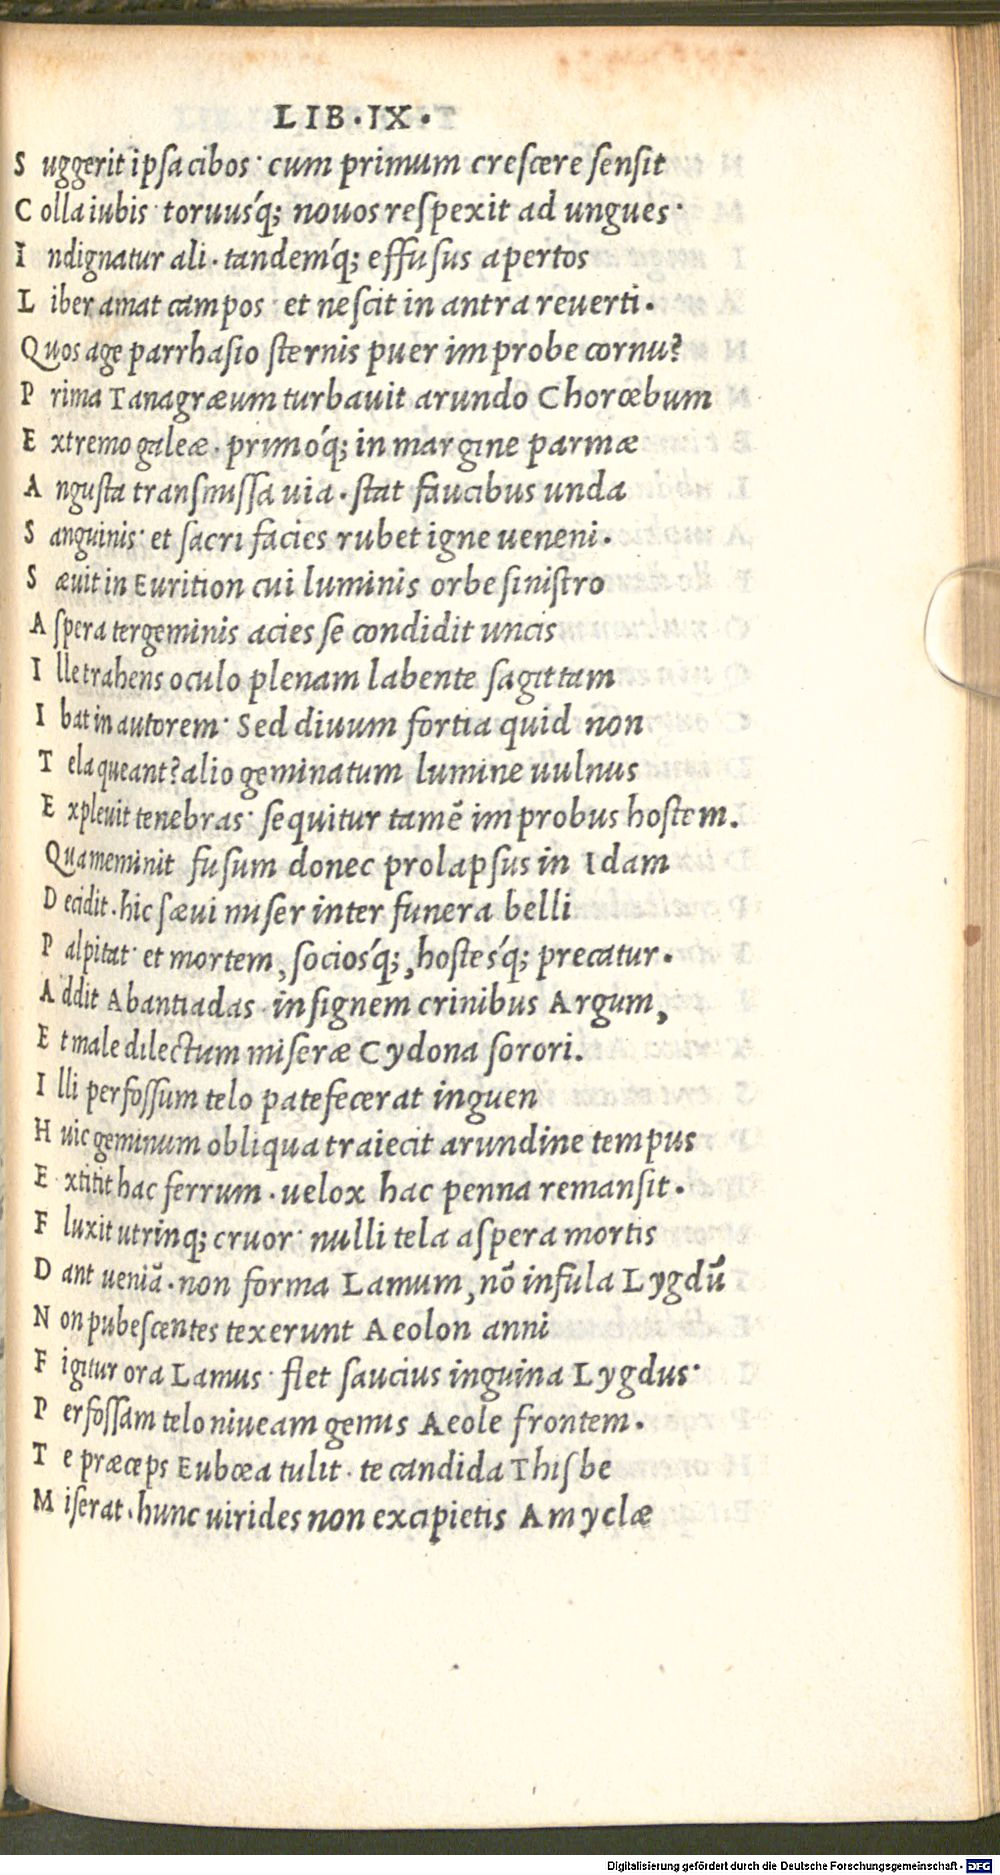 LIB.IX.
S uggerit ipsa cibos· cum primum crescere sensit
C olla iubis· toruusq́; nouos respexit ad ungues·
I ndignatur ali. tandemq́; effusus apertos
L iber amat campos· et nescit in antra reuerti.
Quos age parrhasio sternis puer improbe cornu?
P rima Tanagræum turbauit arundo Chorœbum
E xtremo galeæ. primoq́; in margine parmæ
A ngusta transmissa uia. stat faucibus unda
S anguinis· et sacri facies rubet igne ueneni.
S æuit in Eurition cui luminis orbe sinistro
A spera tergeminis acies se condidit uncis
I lle trahens oculo plenam labente sagittam
I bat in autorem· Sed diuum fortia quid non
T ela queant? alio geminatum lumine uulnus
E xpleuit tenebras· sequitur tamẽ improbus hostem.
Qua meminit fusum donec prolapsus in Idam
D ecidit. hic sæui miser inter funera belli
P alpitat· et mortem, sociosq́;, hostesq́; precatur.
A ddit Abantiadas· insignem crinibus Argum,
E t male dilectum miseræ Cydona sorori.
I lli perfossum telo patefecerat inguen
H uic geminum obliqua traiecit arundine tempus
E xtitit hac ferrum. uelox hac penna remansit.
F luxit utrinq; cruor· nulli tela aspera mortis
D ant ueniã. non forma Lamum, nõ infula Lygdũ
N on pubescentes texerunt Aeolon anni
F igitur ora Lamus· flet saucius inguina Lygdus·
P erfossam telo niueam gemis Aeole frontem.
T e præceps Eubœa tulit· te candida Thisbe
M iserat. hunc uirides non excipietis Amyclæ
Digitalisierung gefördert durch die Deutsche Forschungsgemeinschaft - DFG